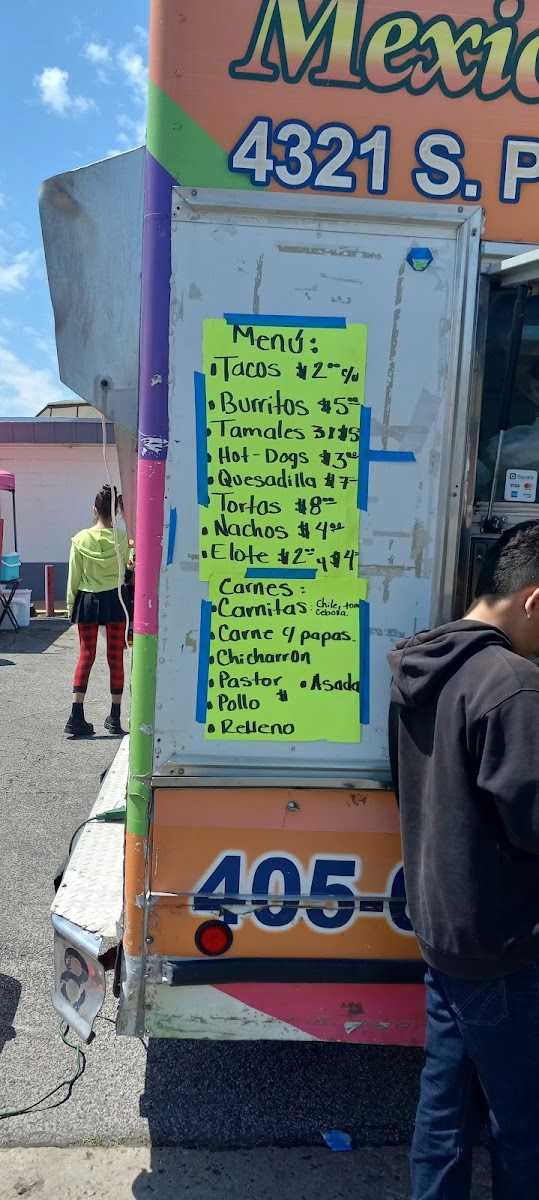 Mexic
4321 S. P
Menú:
• Tacos $2.00 c/u
• Burritos $5.00
• Tamales 3 x $5
• Hot-Dogs $3.00
• Quesadilla $7
Tortas $8
• Nachos $4.00
• Elote $2 y $4
Carnes:
• Carnitas: Chile, tom
Cebolla.
• Carne c/ papas
• Chicharrón
• Pastor • Asada
• Pollo
• Relleno
Square
VISA
405-
8